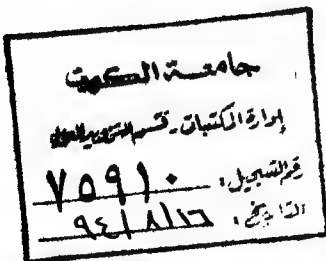 جامعة الكويت
إدارة المكتبات - قسم التزويد
رقم التسجيل: ٧٥٩١٠
التاريخ: ٩٤/٨/١٦